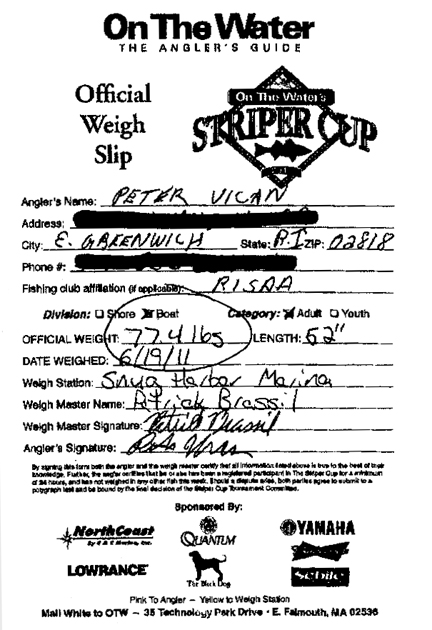 On The Water
THE ANGLER'S GUIDE
Official
Weigh
Slip
On The Water's
STRIPER CUP
Angler's Name: PETER VICAN
Address:
City: E. GREENWICH State: R.I ZIP: 02818
Phone #:
Fishing club affiliation (if applicable): RISAA
Division: Shore Boat Category: Adult Youth
OFFICIAL WEIGHT: 77.4 lbs LENGTH: 52"
DATE WEIGHED: 6/19/11
Weigh Station: Snug Harbor Marina
Weigh Master Name: Patrick Brassil
Weigh Master Signature:
Angler's Signature:
By signing this form both the angler and the weigh master certify that all information listed above is true to the best of their
knowledge. Further, the angler certifies that he or she has been a registered participant in The Striper Cup for a minimum
of 24 hours, and has not weighed in any other fish this week. Should a dispute arise, both parties agree to submit to a
polygraph test and be bound by the final decision of the Striper Cup Tournament Committee.
Sponsored By:
NorthCoast
QUANTUM
YAMAHA
LOWRANCE
The Black Dog
Sebile
Pink To Angler – Yellow to Weigh Station
Mail White to OTW – 35 Technology Park Drive • E. Falmouth, MA 02536